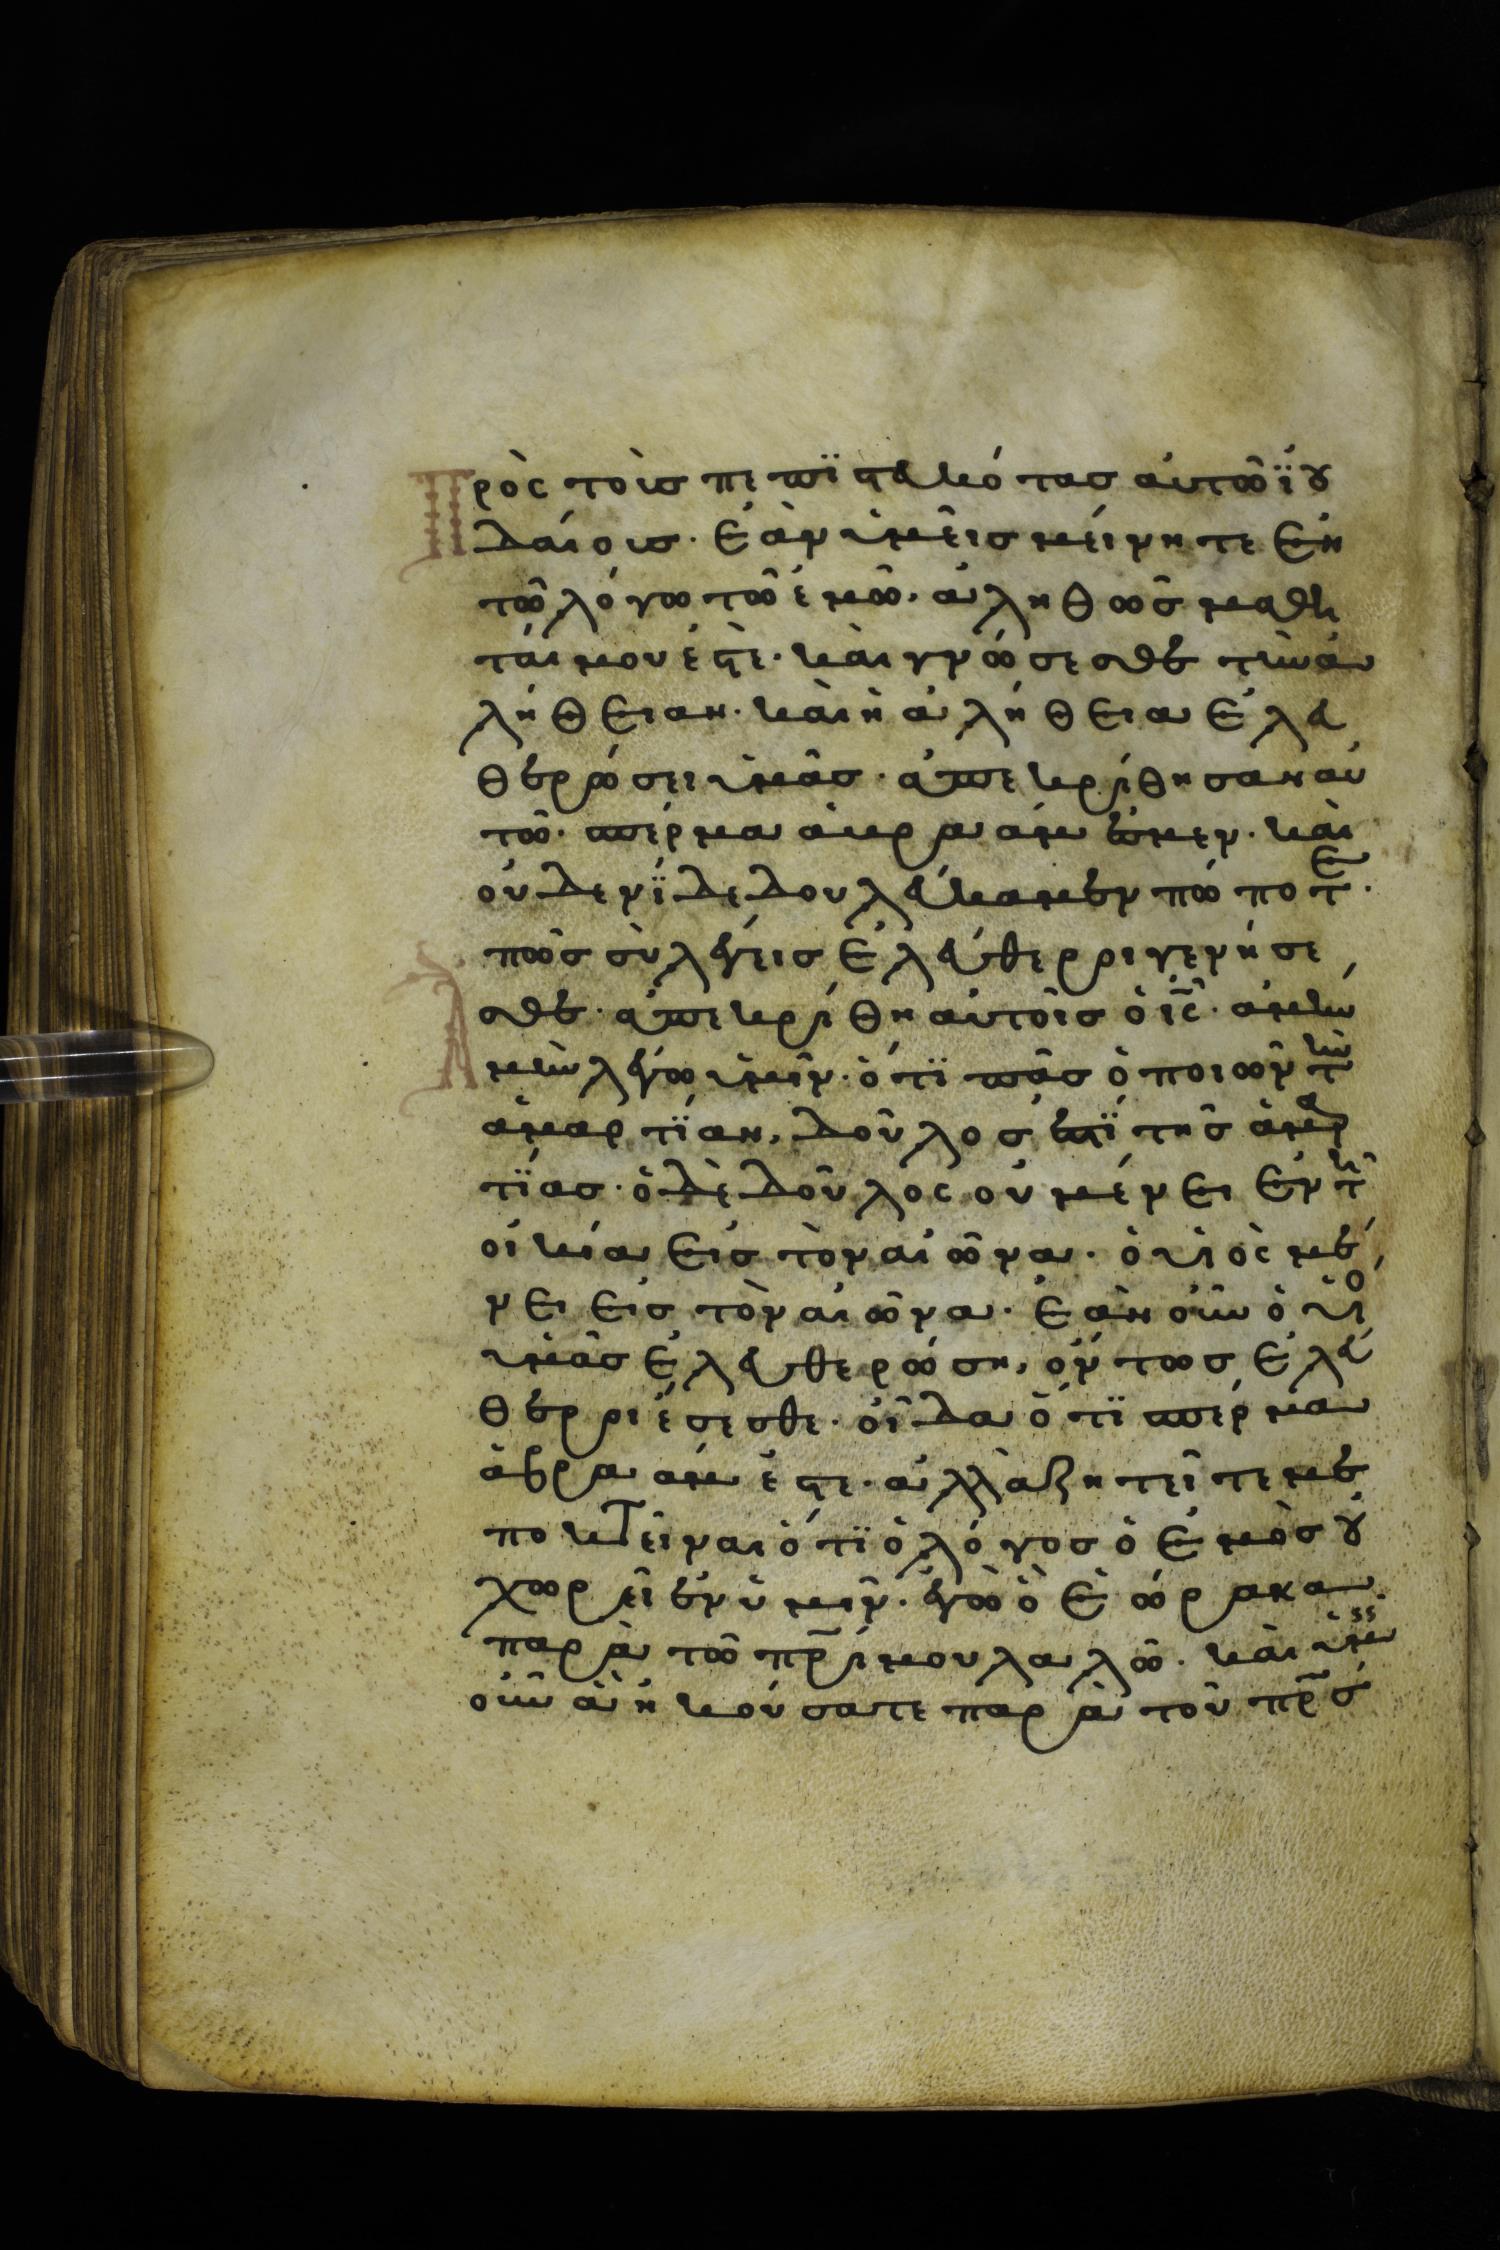 Πρὸς τοὺσ πεπϊστευκότας αὐτῶ ϊου
δαίους· ἐὰν ὑμεῖς μείνητε ἐν
τῶ λόγω τῶ ἐμῶ, ἀληθῶς μαθη
ταί μου ἐστὲ· καὶ γνώσεσθε τὴν ἀ
λήθειαν· καὶ ἡ ἀλήθεια ἐλευ
θερώσει ὑμᾶς· ἀπεκρίθησαν αὐ
τῶ· σπέρμα ἀβραάμ ἐσμεν· καὶ
οὐδενῒ δεδουλεύκαμεν πώποτε·
πῶς σὺ λέγεις ἐλεύθεροι γενήσε
σθε· ἀπεκρίθη αὐτοῖς ὁ ῑς̄· ἀμὴν
ἀμὴν λέγω ὑμῖν· ὅτϊ πᾶς ὁ ποιῶν τὴν
ἁμαρτΐαν, δοῦλος ἐστῒ τῆς ἁμαρ
τΐας· ὁ δὲ δοῦλος οὐ μένει ἐν τῆ
οἰκία εἰς τὸν αἰῶνα· ὁ υἱὸς μέ
νει εἰς τὸν αἰῶνα· ἐὰν οὖν ὁ υἱὸ
ὑμᾶς ἐλευθερώση, ὄντως ἐλεύ
θεροι ἔσεσθε· οἶδα ὅτϊ σπέρμα
ἀβραάμ ἐστε· ἀλλὰ ζητεῖτε με
ἀποκτεῖναι ὅτϊ ὁ λόγος ὁ ἐμὸς οὐ
χωρεῖ ἐν ὑμῖν· ἐγὼ ὃ ἑώρακα
παρὰ τῶ π̄ρ̄ί μου λαλῶ· καὶ ὑμεῖς
οὖν ἃ ἠκούσατε παρὰ τοῦ π̄ρ̄ς